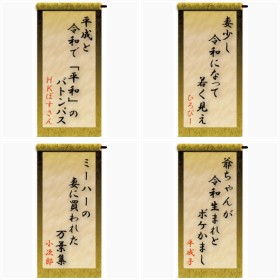 平成と
令和で「平和」の
バトンパス
HKぱすさん
妻少し
令和になって
若く見え
ひろびー
ミーハーの
妻に買われた
万葉集
小次郎
爺ちゃんが
令和生まれと
ボケかまし
平成子